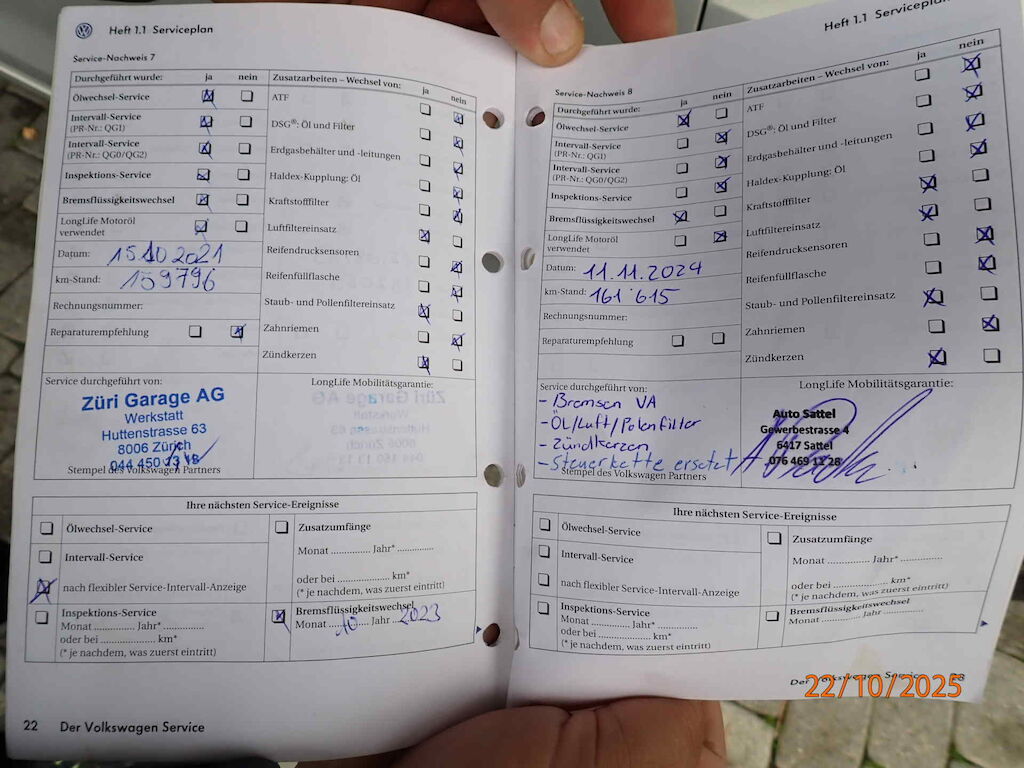 Heft 1.1 Serviceplan
Service-Nachweis 7
Durchgeführt wurde: ja nein
Ölwechsel-Service
Intervall-Service
(PR-Nr.: QG1)
Intervall-Service
(PR-Nr.: QG0/QG2)
Inspektions-Service
Bremsflüssigkeitswechsel
LongLife Motoröl
verwendet
Datum: 15.10 2021
km-Stand: 159796
Rechnungsnummer:
Reparaturempfehlung
Zusatzarbeiten – Wechsel von: ja nein
ATF
DSG®: Öl und Filter
Erdgasbehälter und -leitungen
Haldex-Kupplung: Öl
Kraftstofffilter
Luftfiltereinsatz
Reifendrucksensoren
Reifenfüllflasche
Staub- und Pollenfiltereinsatz
Zahnriemen
Zündkerzen
Service durchgeführt von:
Züri Garage AG
Werkstatt
Huttenstrasse 63
8006 Zürich
044 450 13 13
Stempel des Volkswagen Partners
LongLife Mobilitätsgarantie:
Ihre nächsten Service-Ereignisse
Ölwechsel-Service
Intervall-Service
nach flexibler Service-Intervall-Anzeige
Inspektions-Service
Monat ............... Jahr* ...............
oder bei ............... km*
(* je nachdem, was zuerst eintritt)
Zusatzumfänge
Monat ............... Jahr* ...............
oder bei ............... km*
(* je nachdem, was zuerst eintritt)
Bremsflüssigkeitswechsel
Monat 10 Jahr 2023
22 Der Volkswagen Service
Heft 1.1 Serviceplan
Service-Nachweis 8
Durchgeführt wurde: ja nein
Ölwechsel-Service
Intervall-Service
(PR-Nr.: QG1)
Intervall-Service
(PR-Nr.: QG0/QG2)
Inspektions-Service
Bremsflüssigkeitswechsel
LongLife Motoröl
verwendet
Datum: 11.11.2024
km-Stand: 161'615
Rechnungsnummer:
Reparaturempfehlung
Zusatzarbeiten – Wechsel von: ja nein
ATF
DSG®: Öl und Filter
Erdgasbehälter und -leitungen
Haldex-Kupplung: Öl
Kraftstofffilter
Luftfiltereinsatz
Reifendrucksensoren
Reifenfüllflasche
Staub- und Pollenfiltereinsatz
Zahnriemen
Zündkerzen
Service durchgeführt von:
- Bremsen VA
- Öl/Luft/Polenfilter
- Zündkerzen
- Steuerkette ersetzt
Stempel des Volkswagen Partners
LongLife Mobilitätsgarantie:
Auto Sattel
Gewerbestrasse 4
6417 Sattel
076 469 11 28
Ihre nächsten Service-Ereignisse
Ölwechsel-Service
Intervall-Service
nach flexibler Service-Intervall-Anzeige
Inspektions-Service
Monat ............... Jahr* ...............
oder bei ............... km*
(* je nachdem, was zuerst eintritt)
Zusatzumfänge
Monat ............... Jahr* ...............
oder bei ............... km*
(* je nachdem, was zuerst eintritt)
Bremsflüssigkeitswechsel
Monat ............... Jahr ...............
Der Volkswagen Service 23
22/10/2025